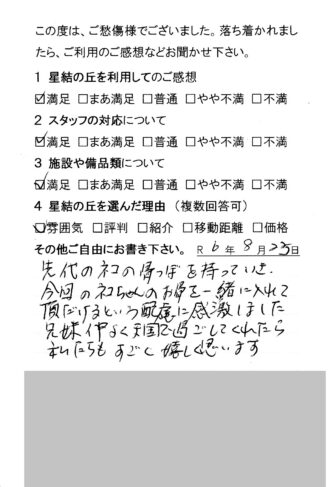 この度は、ご愁傷様でございました。落ち着かれまし
たら、ご利用のご感想などお聞かせ下さい。
1 星結の丘を利用してのご感想
☑満足 □まあ満足 □普通 □やや不満 □不満
2 スタッフの対応について
☑満足 □まあ満足 □普通 □やや不満 □不満
3 施設や備品類について
☑満足 □まあ満足 □普通 □やや不満 □不満
4 星結の丘を選んだ理由（複数回答可）
☑雰囲気 □評判 □紹介 □移動距離 □価格
その他ご自由にお書き下さい。 R 6 年 8 月 23 日
先代のネコの骨つぼを持っていき
今回のネコちゃんのお骨を一緒に入れて
頂だけるという配慮に感激しました
兄妹仲よく天国で過ごしてくれたら
私たちもすごく嬉しく思います